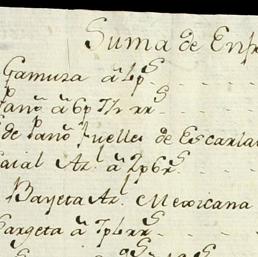 Suma de Enfr
Gamuza â 4pS
Pano â 6p 7½ rrS
de Pano fuelles de Escarlat
aial Az. â 2p6rS
Bayeta Az. Mexicana
Sargeta â 7p6rrS